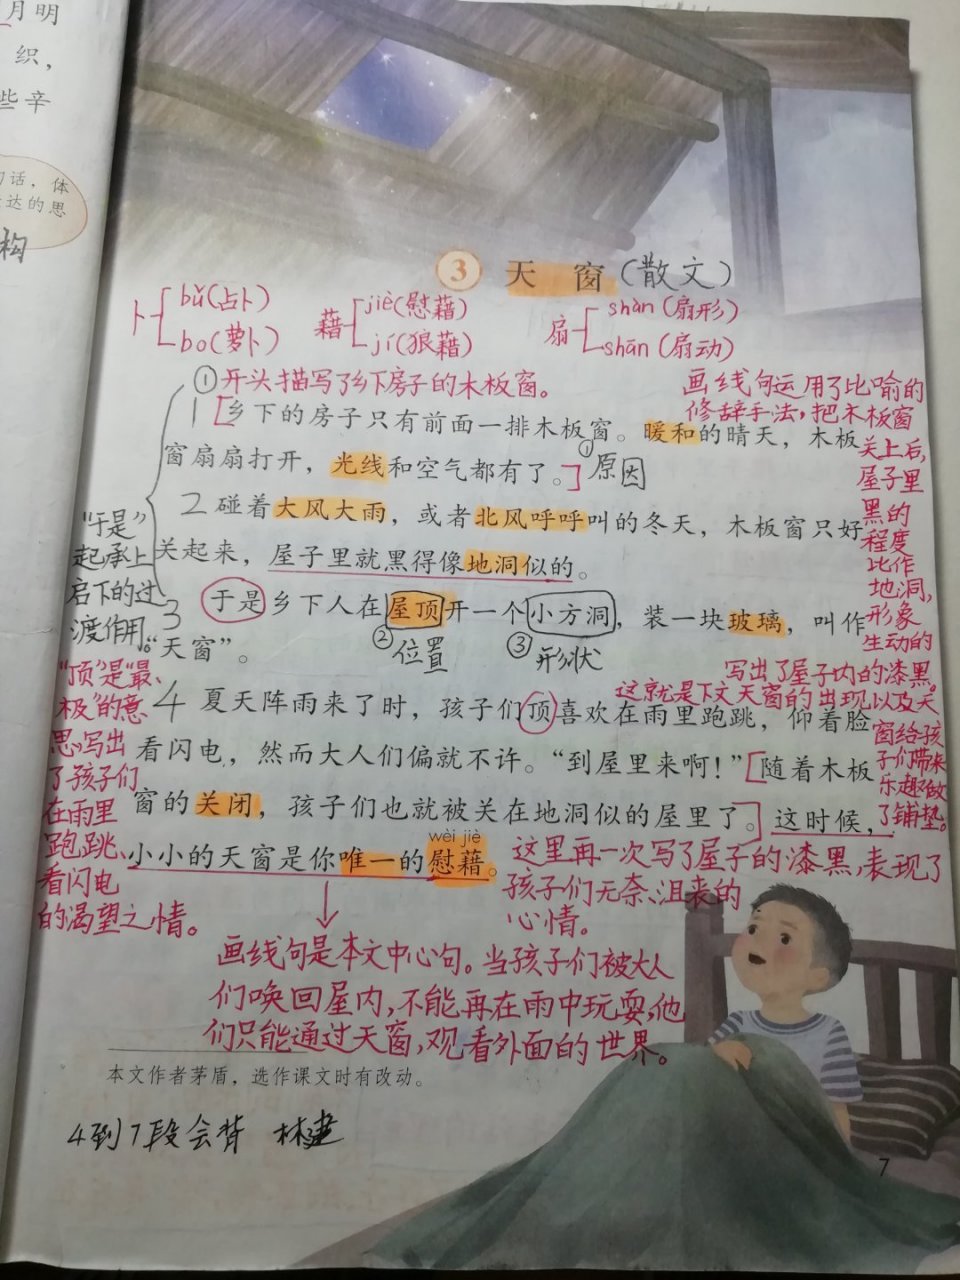 月明
织，
些辛
话，体
达的思
构
3 天窗（散文）
卜 bǔ（占卜）
bo（萝卜）
藉 jiè（慰藉）
jí（狼藉）
扇 shàn（扇形）
shān（扇动）
①开头描写了乡下房子的木板窗。
画线句运用了比喻的
修辞手法，把木板窗
关上后，
屋子里
黑的
程度
比作
地洞，
形象
生动的
写出了屋子内的漆黑。
这就是下文天窗的出现以及天
窗给孩
子们带来
乐趣做
了铺垫。
1 [乡下的房子只有前面一排木板窗。暖和的晴天，木板
窗扇扇打开，光线和空气都有了。]
①原因
2 碰着大风大雨，或者北风呼呼叫的冬天，木板窗只好
关起来，屋子里就黑得像地洞似的。
3 于是乡下人在屋顶开一个小方洞，装一块玻璃，叫作
②位置
③形状
“天窗”。
“于是”
起承上
启下的过
渡作用。
4 夏天阵雨来了时，孩子们顶喜欢在雨里跑跳，仰着脸
看闪电，然而大人们偏就不许。“到屋里来啊！”[随着木板
窗的关闭，孩子们也就被关在地洞似的屋里了。]这时候，
wèi jiè
小小的天窗是你唯一的慰藉。
“顶”是“最、
极”的意
思，写出
了孩子们
在雨里
跑跳、
看闪电
的渴望之情。
这里再一次写了屋子的漆黑，表现了
孩子们无奈、沮丧的
心情。
画线句是本文中心句。当孩子们被大人
们唤回屋内，不能再在雨中玩耍，他
们只能通过天窗，观看外面的世界。
本文作者茅盾，选作课文时有改动。
4到7段会背 林建
7